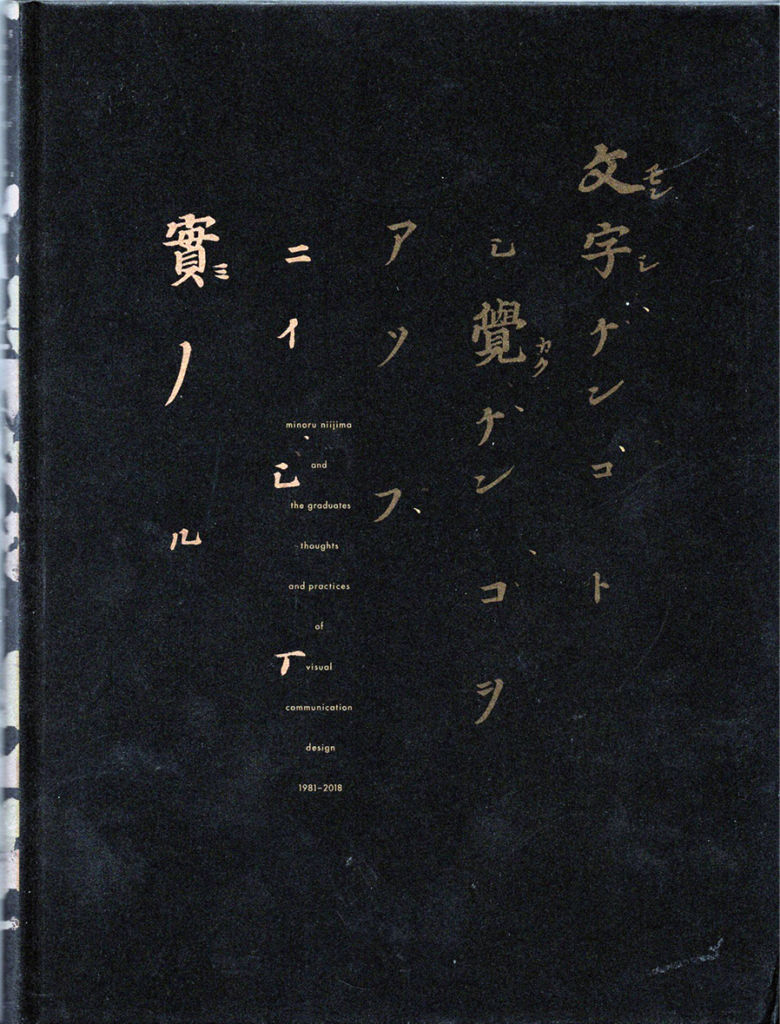 文字ゲンゴト
モンジ
シ覺ゲンゴヲ
カク
アツブ
ニイジマ
實ノル
ミ
minoru niijima
and
the graduates
thoughts
and practices
of
visual
communication
design
1981–2018